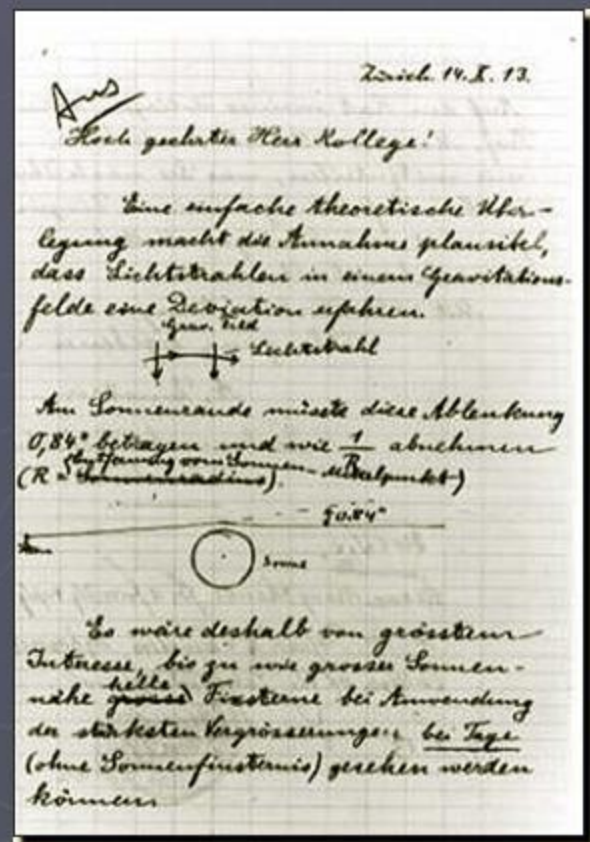 Zürich. 14. X. 13.
Aus
Hoch geehrter Herr Kollege!
Eine einfache theoretische Über-
legung macht die Annahme plausibel,
dass Lichtstrahlen in einem Gravitations-
felde eine Deviation erfahren.
Grav. Feld
Lichtstrahl
Am Sonnenrande müsste diese Ablenkung
0,84" betragen und wie 1/R abnehmen
(Entfernung vom Sonnen-Mittelpunkt)
(R = Sonnenradius).
0.84"
Sonne
Es wäre deshalb von grösstem
Interesse, bis zu wie grosser Sonnen-
nähe grosse helle Fixsterne bei Anwendung
der stärksten Vergrösserungen bei Tage
(ohne Sonnenfinsternis) gesehen werden
können.